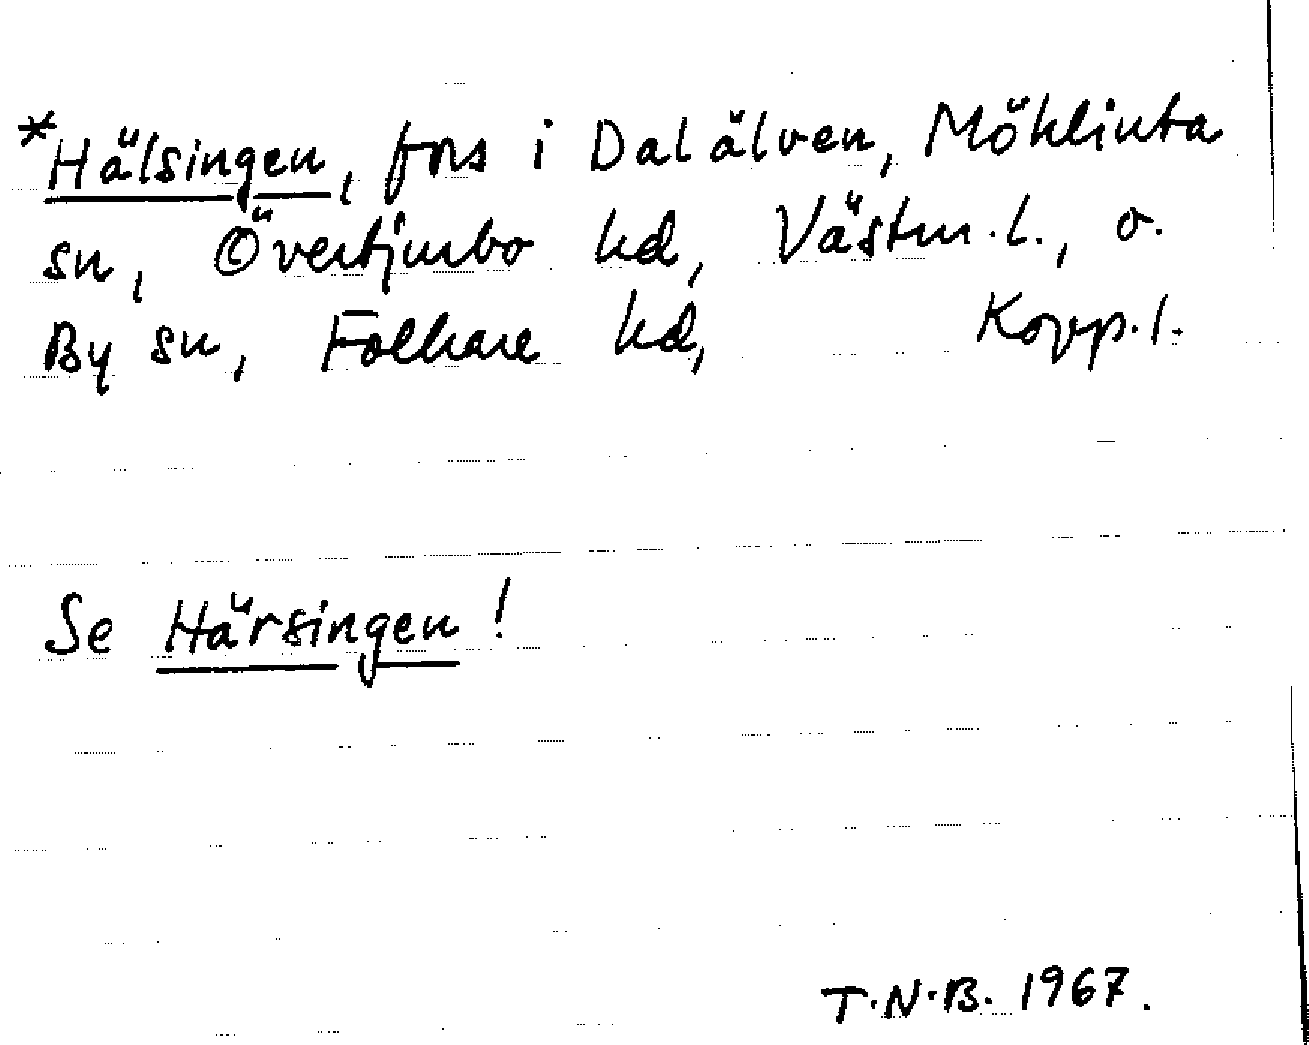 *Hälsingen, fors i Dalälven, Möklinta
sn, Övertjurbo hd, Västm. l., o.
By sn, Folkare hd, Kopp. l.
Se Härsingen!
T.N.B. 1967.